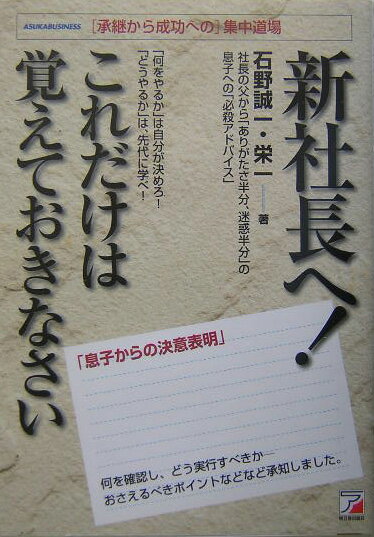 ASUKA BUSINESS
[承継から成功への]集中道場
新社長へ!
石野誠一・栄一――著
社長の父から「ありがたさ半分、迷惑半分」の
息子への「必殺アドバイス」
「何をやるか」は自分が決めろ!
「どうやるか」は、先代に学べ!
これだけは
覚えておきなさい
「息子からの決意表明」
何を確認し、どう実行すべきか―
おさえるべきポイントなどなど承知しました。
明日香出版社